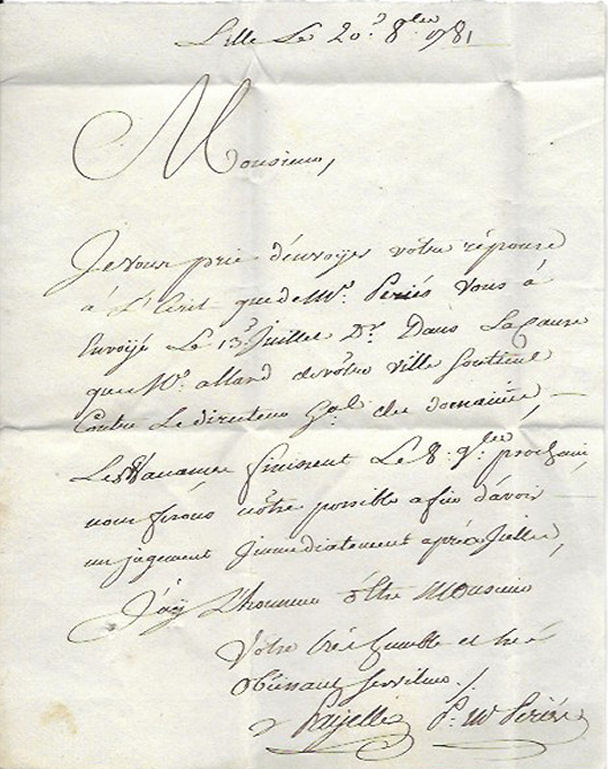 Lille Le 20.e 8bre 1781
Monsieur,
Je vous prie d'envoyer vôtre réponse
à L'Ecrit que de Mr. Periés Vous à
Envoyé Le 13.e Juillet Dr. Dans La Cause
que Mr. allard de vôtre ville Soutient
Contre Le directeur Gal. des domaines —
Les Vacances finissent Le 8. 9bre prochain,
nous ferons nôtre possible afin d'avoir
un jugement Immediatement après Jcelles,
J'ay L'honneur d'être Monsieur
Votre trés humble et trés
obéissant serviteur ./.
P. Mr Periés